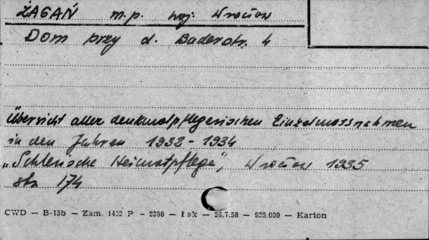 ŻAGAŃ m.p. woj. Wrocław
Dom przy d. Baderstr. 4
Übersicht aller denkmalpflegerischen Einzelmassnahmen
in den Jahren 1932 - 1934
"Schlesische Heimatpflege", Wrocław 1935
str. 174
CWD — B-15b — Zam. 1422 P - 2298 - I sk - 26.7.58 - 925.000 - Karton